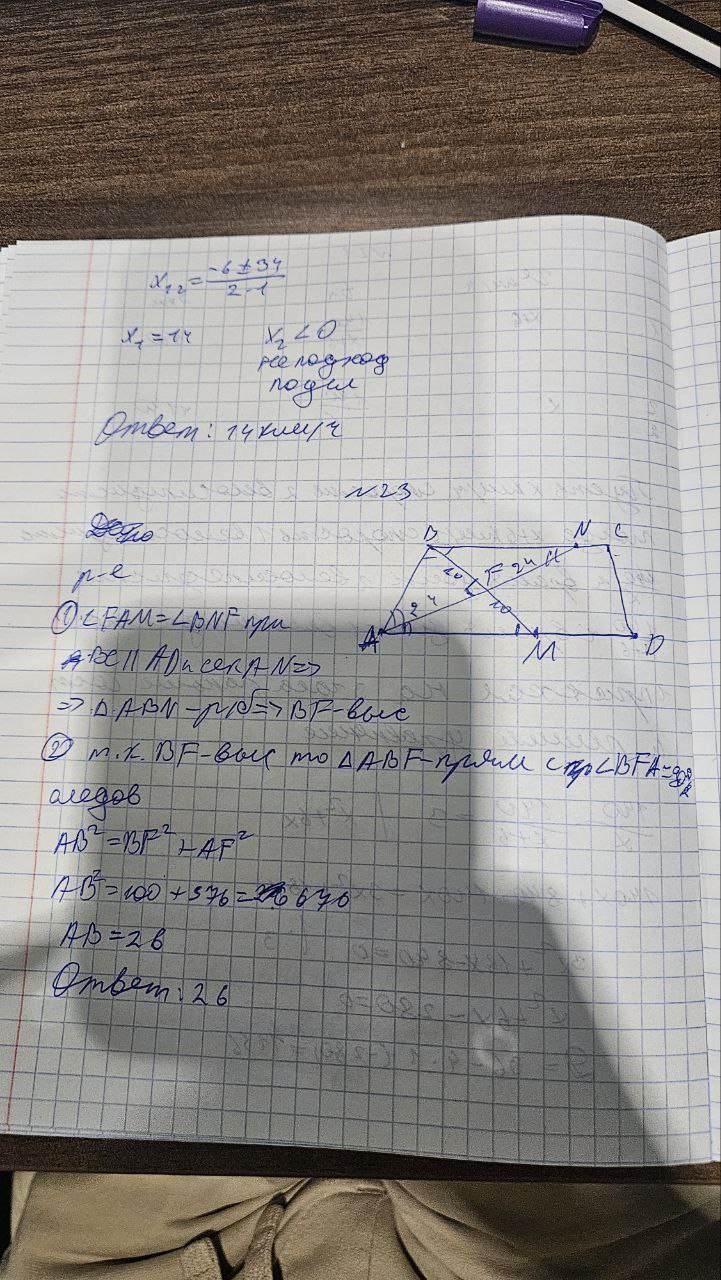 x₁,₂ = (-6 ± 34)/(2·1)
x₁ = 14 x₂ < 0
не подход
по усл
Ответ: 14 км/ч
№23
р-е
① ∠FAM = ∠BNF при
BC || AD и сек AN =>
=> △ABN - р/б => BF - выс
② т.к. BF - выс то △ABF - прям с ∠BFA = 90°
следов
AB² = BF² + AF²
AB² = 100 + 576 = 676
AB = 26
Ответ: 26
B N C
10 F 24
24 10
A M D